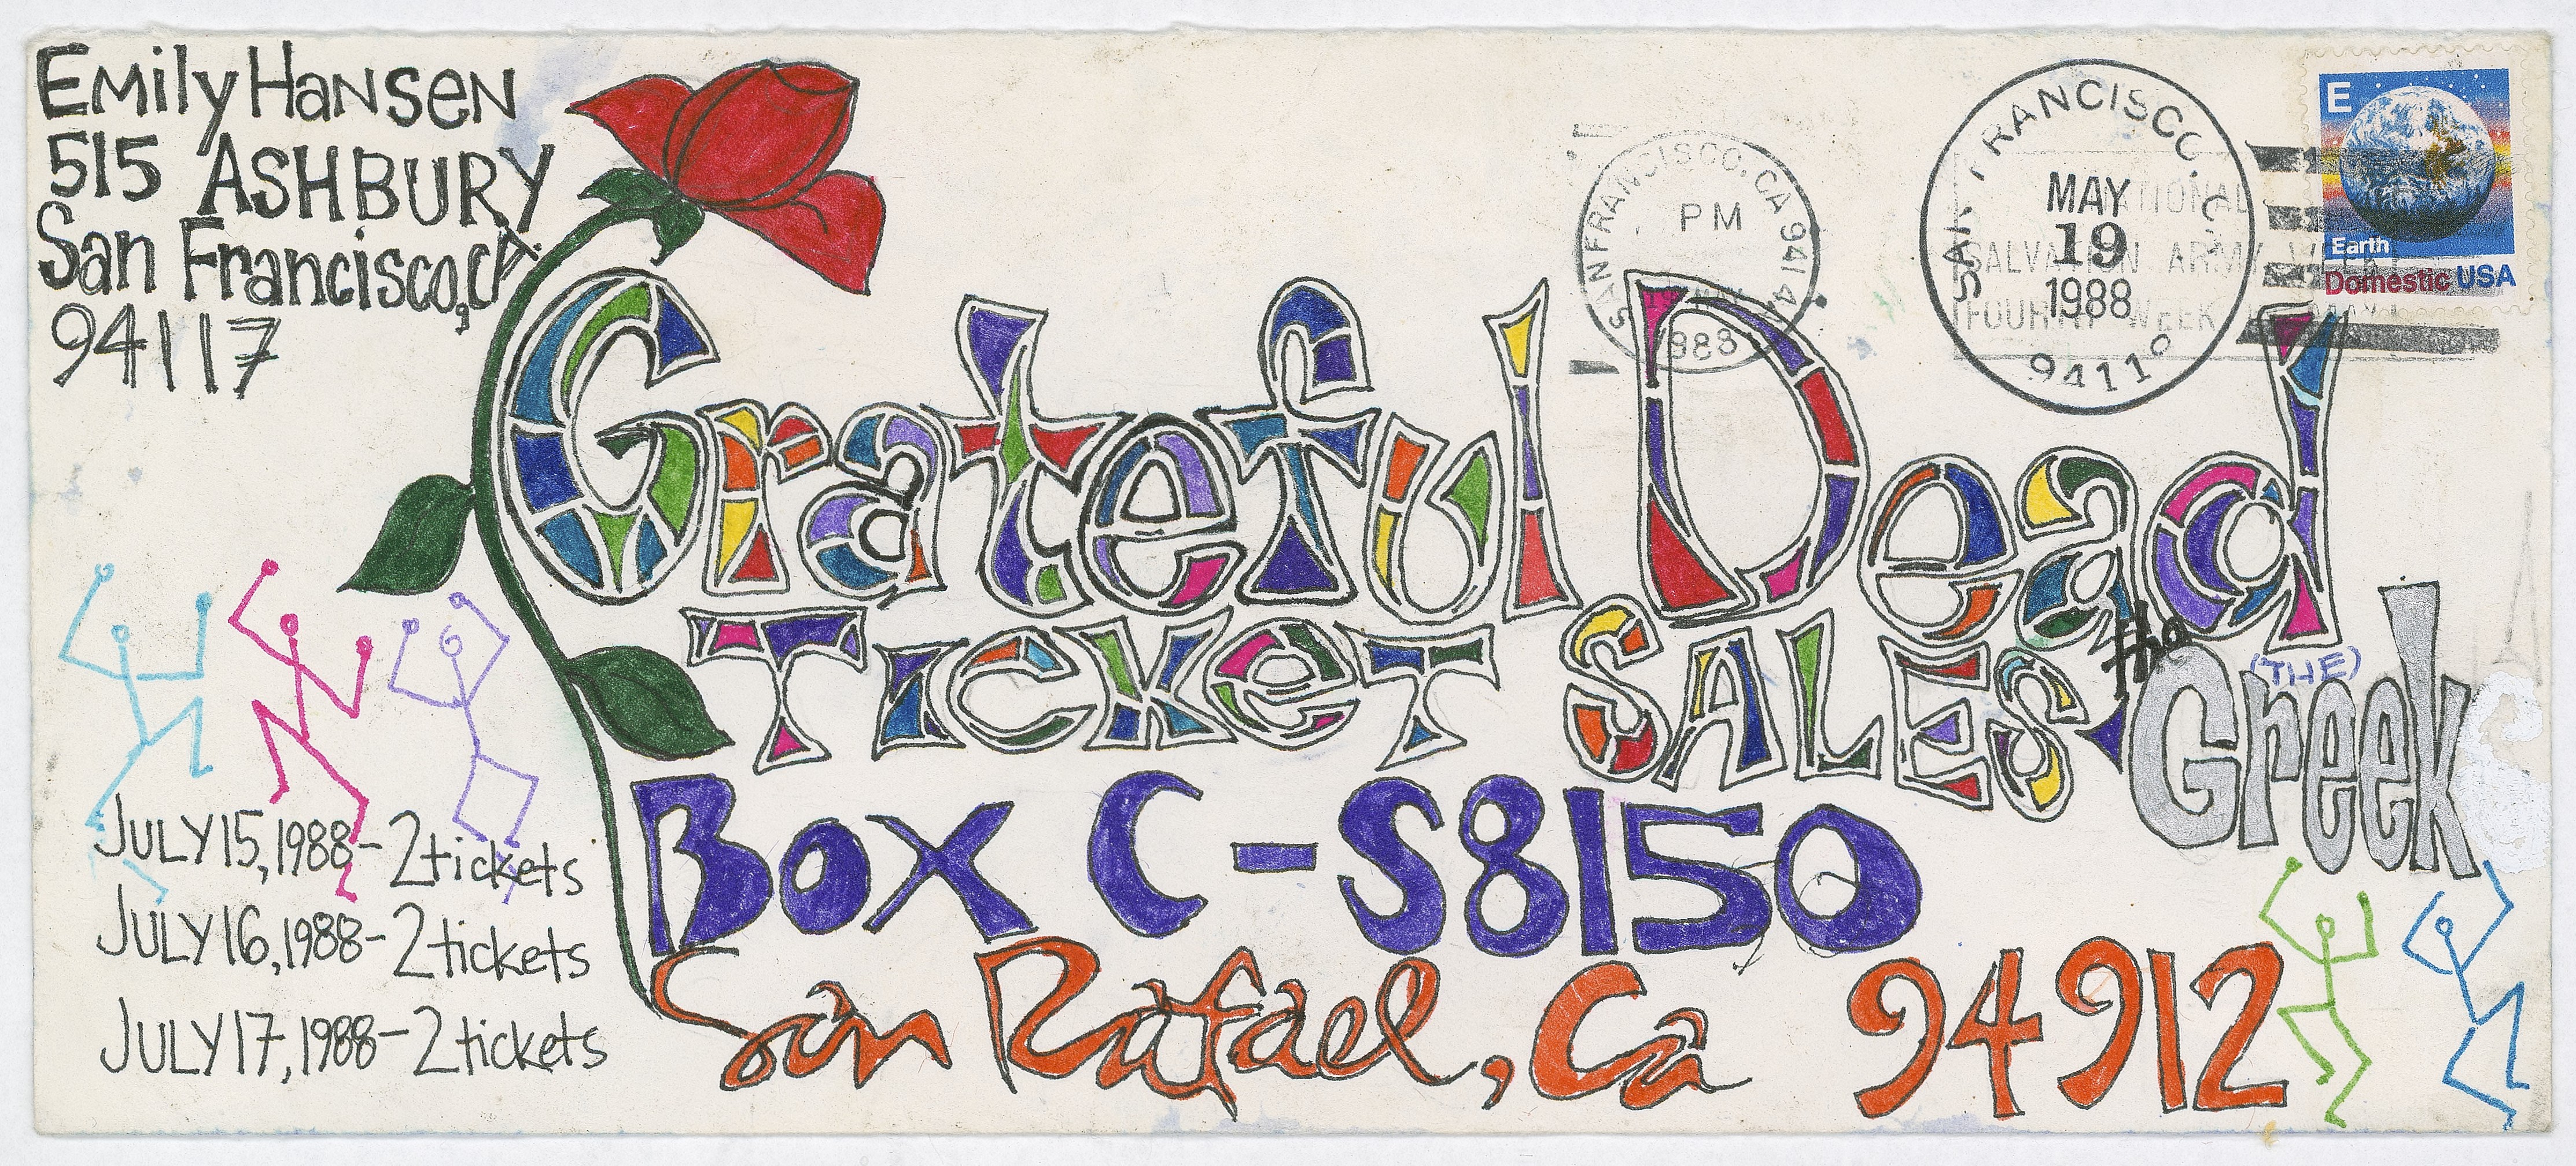 Emily Hansen
515 ASHBURY
San Francisco, CA.
94117
SAN FRANCISCO, CA 94
PM
1988
SAN FRANCISCO, C
MAY
19
1988
9411
NATIONAL
SALVATION ARMY WEEK
FOURTH WEEK
E
Earth
Domestic USA
Grateful Dead
TICKET SALES
(THE)
Greek
Box C-S8150
San Rafael, Ca 94912
JULY 15, 1988 - 2 tickets
JULY 16, 1988 - 2 tickets
JULY 17, 1988 - 2 tickets